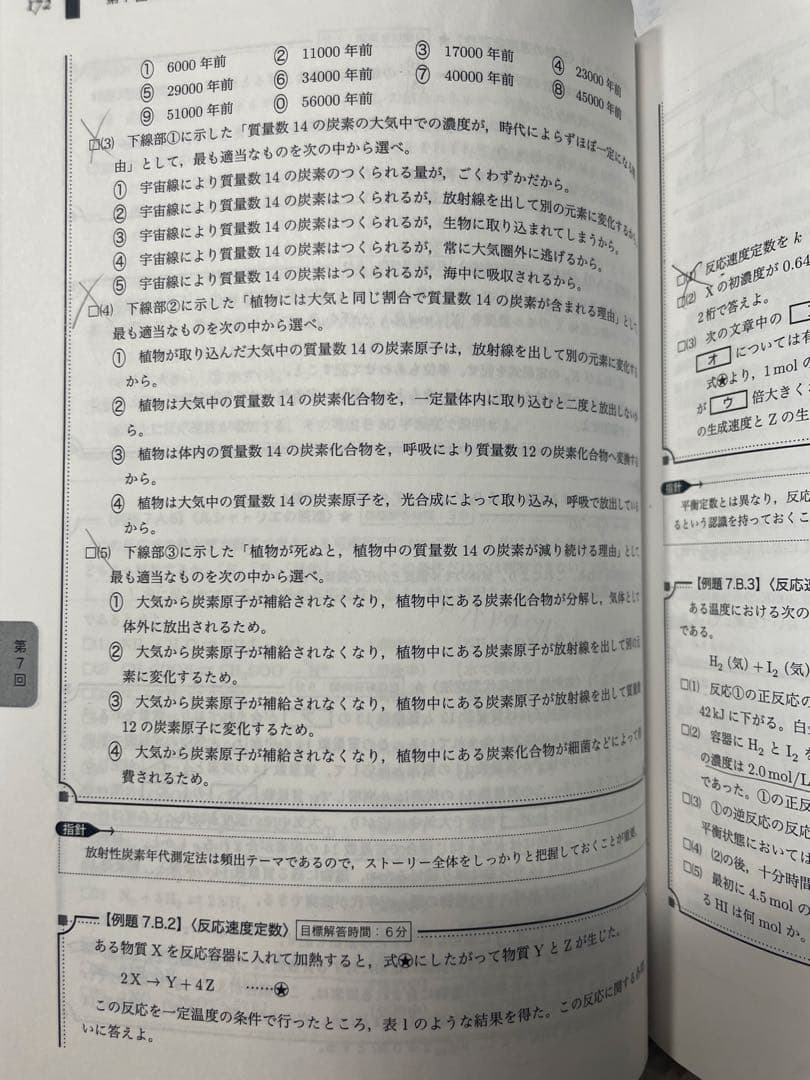 172
① 6000 年前 ② 11000 年前 ③ 17000 年前 ④ 23000 年前
⑤ 29000 年前 ⑥ 34000 年前 ⑦ 40000 年前 ⑧ 45000 年前
⑨ 51000 年前 ⓪ 56000 年前
□(3) 下線部①に示した「質量数 14 の炭素の大気中での濃度が，時代によらずほぼ一定になる理
由」として，最も適当なものを次の中から選べ。
① 宇宙線により質量数 14 の炭素のつくられる量が，ごくわずかだから。
② 宇宙線により質量数 14 の炭素はつくられるが，放射線を出して別の元素に変化するから。
③ 宇宙線により質量数 14 の炭素はつくられるが，生物に取り込まれてしまうから。
④ 宇宙線により質量数 14 の炭素はつくられるが，常に大気圏外に逃げるから。
⑤ 宇宙線により質量数 14 の炭素はつくられるが，海中に吸収されるから。
□(4) 下線部②に示した「植物には大気と同じ割合で質量数 14 の炭素が含まれる理由」として
最も適当なものを次の中から選べ。
① 植物が取り込んだ大気中の質量数 14 の炭素原子は，放射線を出して別の元素に変化する
から。
② 植物は大気中の質量数 14 の炭素化合物を，一定量体内に取り込むと二度と放出しないか
ら。
③ 植物は体内の質量数 14 の炭素化合物を，呼吸により質量数 12 の炭素化合物へ変換する
から。
④ 植物は大気中の質量数 14 の炭素原子を，光合成によって取り込み，呼吸で放出している
から。
□(5) 下線部③に示した「植物が死ぬと，植物中の質量数 14 の炭素が減り続ける理由」として
最も適当なものを次の中から選べ。
① 大気から炭素原子が補給されなくなり，植物中にある炭素化合物が分解し，気体として
体外に放出されるため。
② 大気から炭素原子が補給されなくなり，植物中にある炭素原子が放射線を出して別の元
素に変化するため。
③ 大気から炭素原子が補給されなくなり，植物中にある炭素原子が放射線を出して質量数
12 の炭素原子に変化するため。
④ 大気から炭素原子が補給されなくなり，植物中にある炭素化合物が細菌などによって消
費されるため。
第7回
指針
放射性炭素年代測定法は頻出テーマであるので，ストーリー全体をしっかりと把握しておくことが重要。
【例題 7.B.2】〈反応速度定数〉 目標解答時間：6分
ある物質 X を反応容器に入れて加熱すると，式★にしたがって物質 Y と Z が生じた。
2X → Y + 4Z ……★
この反応を一定温度の条件で行ったところ，表 1 のような結果を得た。この反応に関する各問
いに答えよ。
□(1) 反応速度定数を k
□(2) X の初濃度が 0.64
2桁で答えよ。
□(3) 次の文章中の
オ については有
式★より，1 mol の
が ウ 倍大きく
の生成速度と Z の生
指針
平衡定数とは異なり，反応
るという認識を持っておくこ
【例題 7.B.3】〈反応速
ある温度における次の
である。
H₂ (気) + I₂ (気)
□(1) 反応①の正反応の
42 kJ に下がる。白金
□(2) 容器に H₂ と I₂ を
の濃度は 2.0 mol/L
であった。①の正反
□(3) ①の逆反応の反応
平衡状態においては
□(4) (2)の後，十分時間
□(5) 最初に 4.5 mol の
る HI は何 mol か。